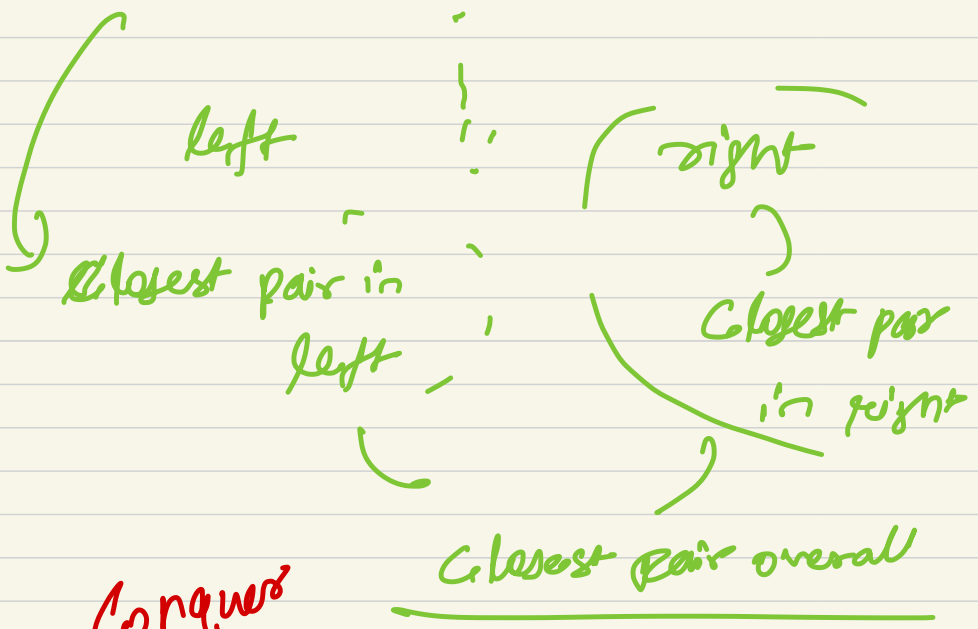 left
right
Closest pair in
left
Closest pair
in right
Closest pair overall
Conquer